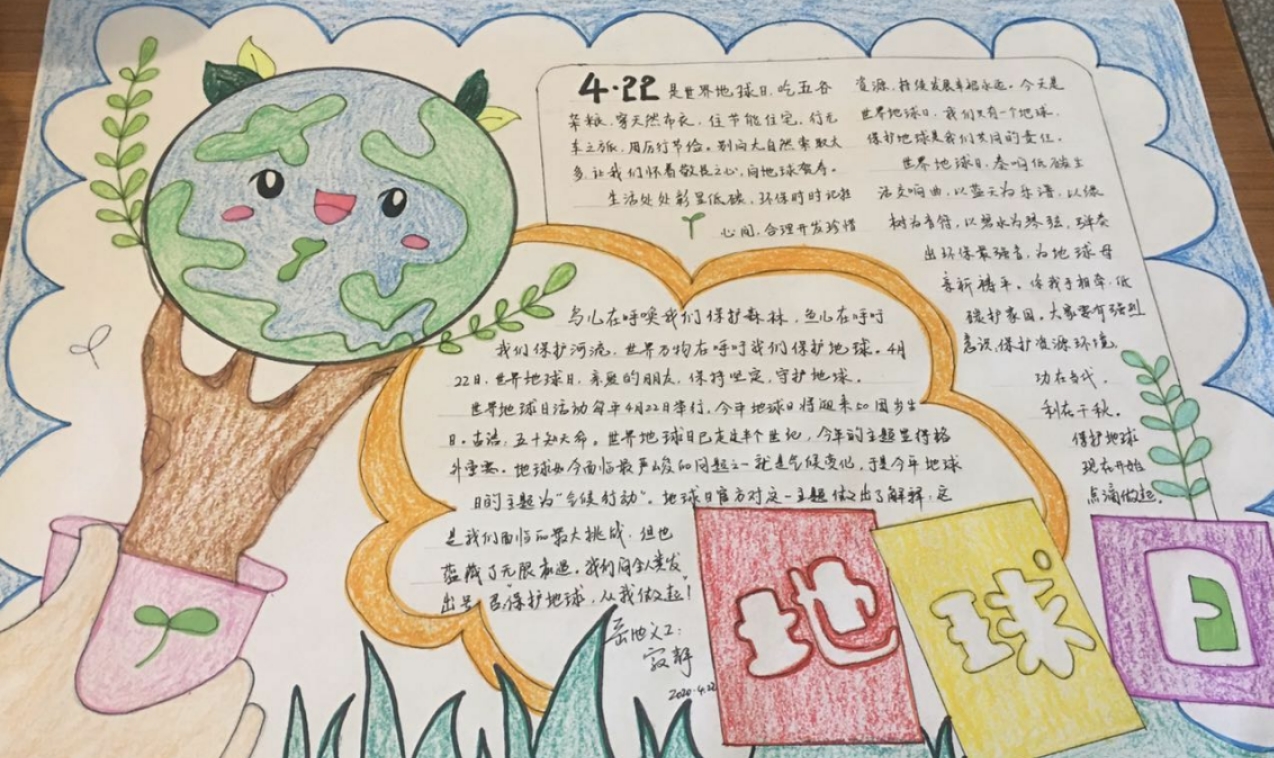 4·22 是世界地球日,吃五谷
杂粮,穿天然布衣,住节能住宅,行无
车之旅,用厉行节俭。别向大自然索取太
多,让我们怀着敬畏之心,向地球贺寿。
生活处处彰显低碳,环保时时记在
心间,合理开发珍惜
资源,持续发展幸福永远。今天是
世界地球日,我们只有一个地球,
保护地球是我们共同的责任。
世界地球日,奏响低碳生
活交响曲,以蓝天为乐谱,以绿
树为音符,以碧水为琴弦,弹奏
出环保最强音,为地球母
亲祈祷平。你我手相牵,低
碳护家园。大家要有强烈
意识,保护资源环境,
功在当代,
利在千秋。
保护地球
现在开始
点滴做起。
鸟儿在呼唤我们保护森林,鱼儿在呼吁
我们保护河流,世界万物在呼吁我们保护地球。4月
22日,世界地球日,亲爱的朋友,保持坚定,守护地球。
世界地球日活动每年4月22日举行,今年地球日将迎来50周岁生
日。古语,五十知天命。世界地球日已走过半个世纪,今年的主题显得格
外重要。地球如今面临最严峻的问题之一就是气候变化,于是今年地球
日的主题为“气候行动”。地球日官方对这一主题做出了解释:这
是我们面临的最大挑战,但也
蕴藏了无限机遇。我们向全人类发
出号召“保护地球,从我做起!
2020·4.22
地 球 日